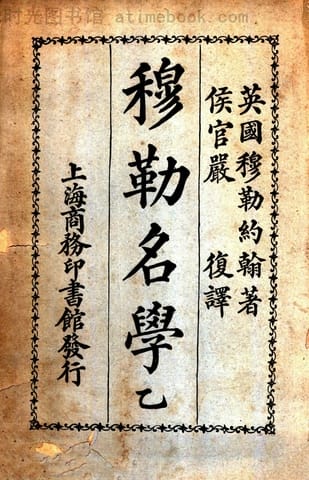 时光图书馆 atimebook.com
英國穆勒約翰著
侯官嚴 復譯
穆勒名學乙
上海商務印書館發行